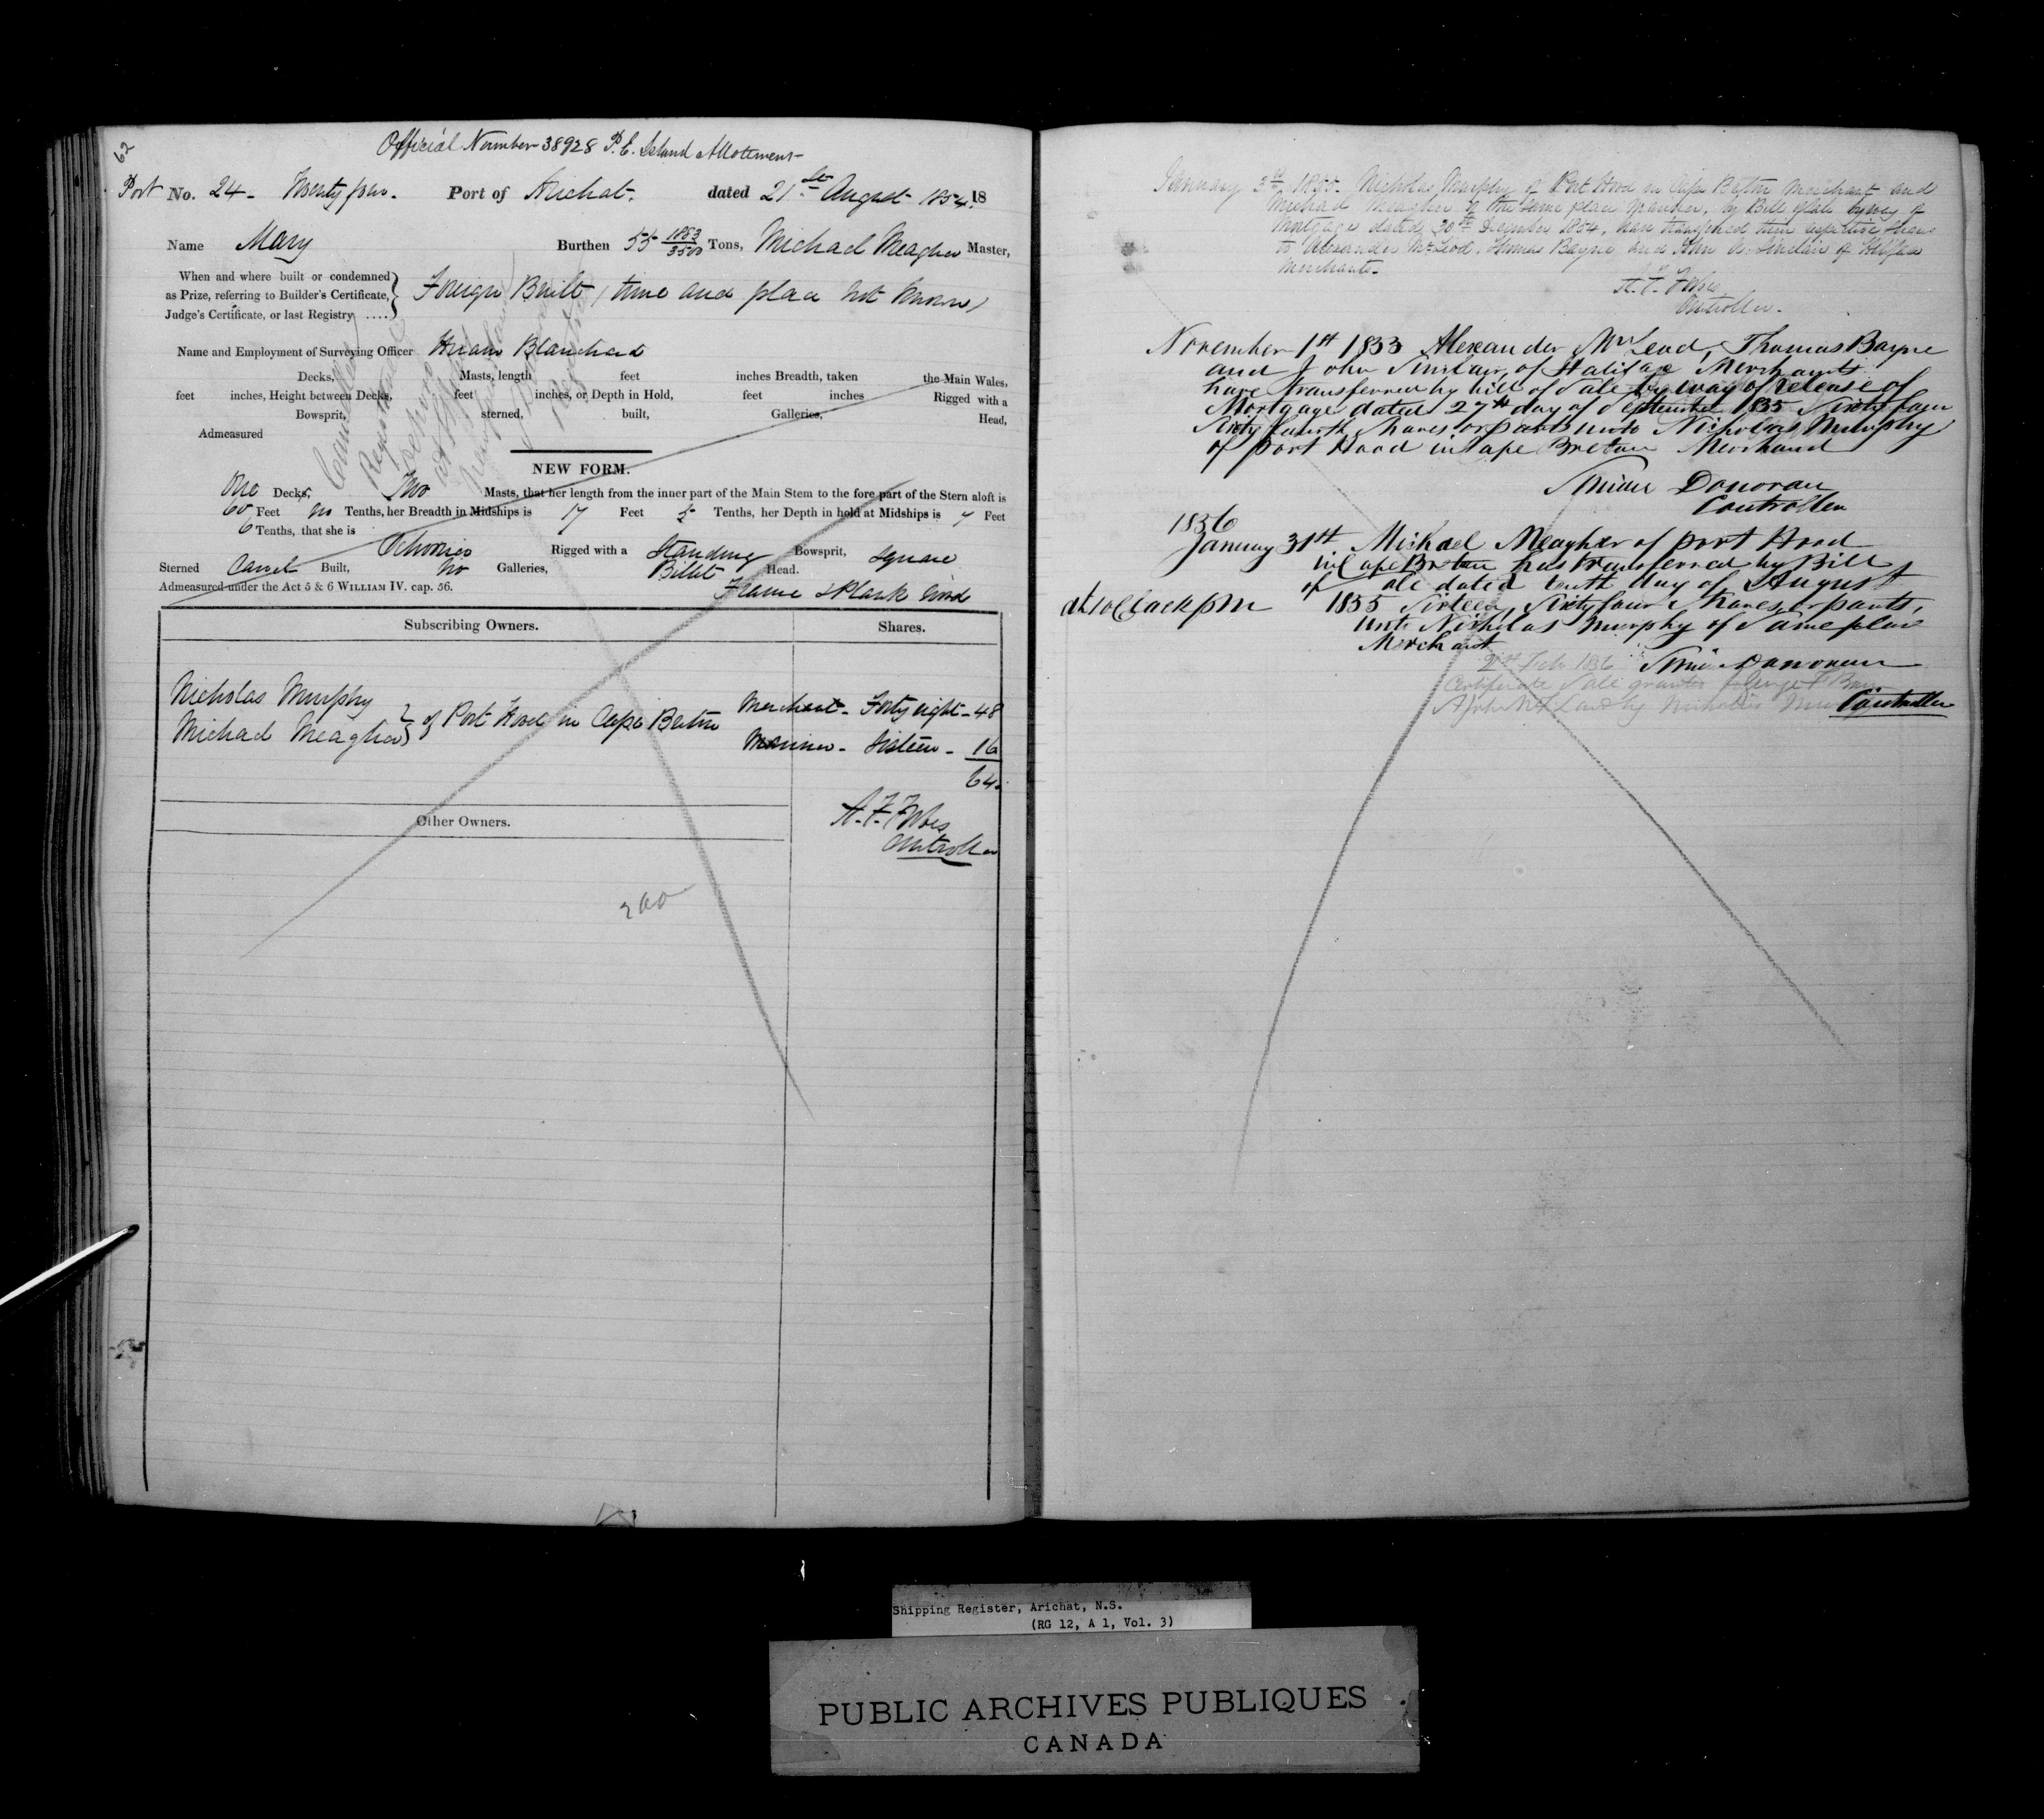 62
Official Number 38928 P. E. Island Allotment
Port No. 24 - Twenty four. Port of Arichat. dated 21st August 1854. 18
Name Mary Burthen 55 1883/3500 Tons, Michael Meagher Master,
When and where built or condemned
as Prize, referring to Builder's Certificate,
Judge's Certificate, or last Registry ....
Foreign Built (time and place not known)
Name and Employment of Surveying Officer Hiram Blanchard
Decks, Masts, length feet inches Breadth, taken the Main Wales,
feet inches, Height between Decks, feet inches, or Depth in Hold, feet inches Rigged with a
Bowsprit, sterned, built, Galleries, Head,
Admeasured
NEW FORM.
One Decks, Two Masts, that her length from the inner part of the Main Stem to the fore part of the Stern aloft is
60 Feet no Tenths, her Breadth in Midships is 17 Feet 5 Tenths, her Depth in hold at Midships is 7 Feet
6 Tenths, that she is Schooner Rigged with a Standing Bowsprit, Square
Sterned Carvel Built, No Galleries, Billet Head.
Admeasured under the Act 5 & 6 WILLIAM IV. cap. 56. Frame & Plank Wood
Subscribing Owners. Shares.
Nicholas Murphy Merchant - Forty eight - 48
Michael Meagher } of Port Hood in Cape Breton Mariner - Sixteen - 16
64.
A. F. Forbes
Controller
Other Owners.
200
January 1855. Nicholas Murphy of Port Hood in Cape Breton Merchant and
Michael Meagher of the same place Mariner, by Bill of Sale by way of
Mortgage dated 30th December 1854, have transferred their respective shares
to Alexander McLeod, Thomas Bayne and John Sinclair of Halifax
Merchants.
A. F. Forbes
Controller.
November 1st 1855 Alexander McLeod, Thomas Bayne
and John Sinclair, of Halifax Merchants
have transferred by bill of Sale by way of release of
Mortgage dated 27th day of September 1855 Sixty four
Sixty fourth Shares or parts unto Nicholas Murphy
of Port Hood in Cape Breton Merchant
Donovan
Controller
1856
January 31st Michael Meagher of port Hood
in Cape Breton has transferred by Bill
of Sale dated tenth day of August
at 10 Clock pm 1855 Sixteen Sixty four Shares or parts,
unto Nicholas Murphy of Same place
Merchant
Donovan
2nd Feb 1856
Certificate Sale granted George
by Nicholas
Controller
Shipping Register, Arichat, N.S.
(RG 12, A 1, Vol. 3)
PUBLIC ARCHIVES PUBLIQUES
CANADA